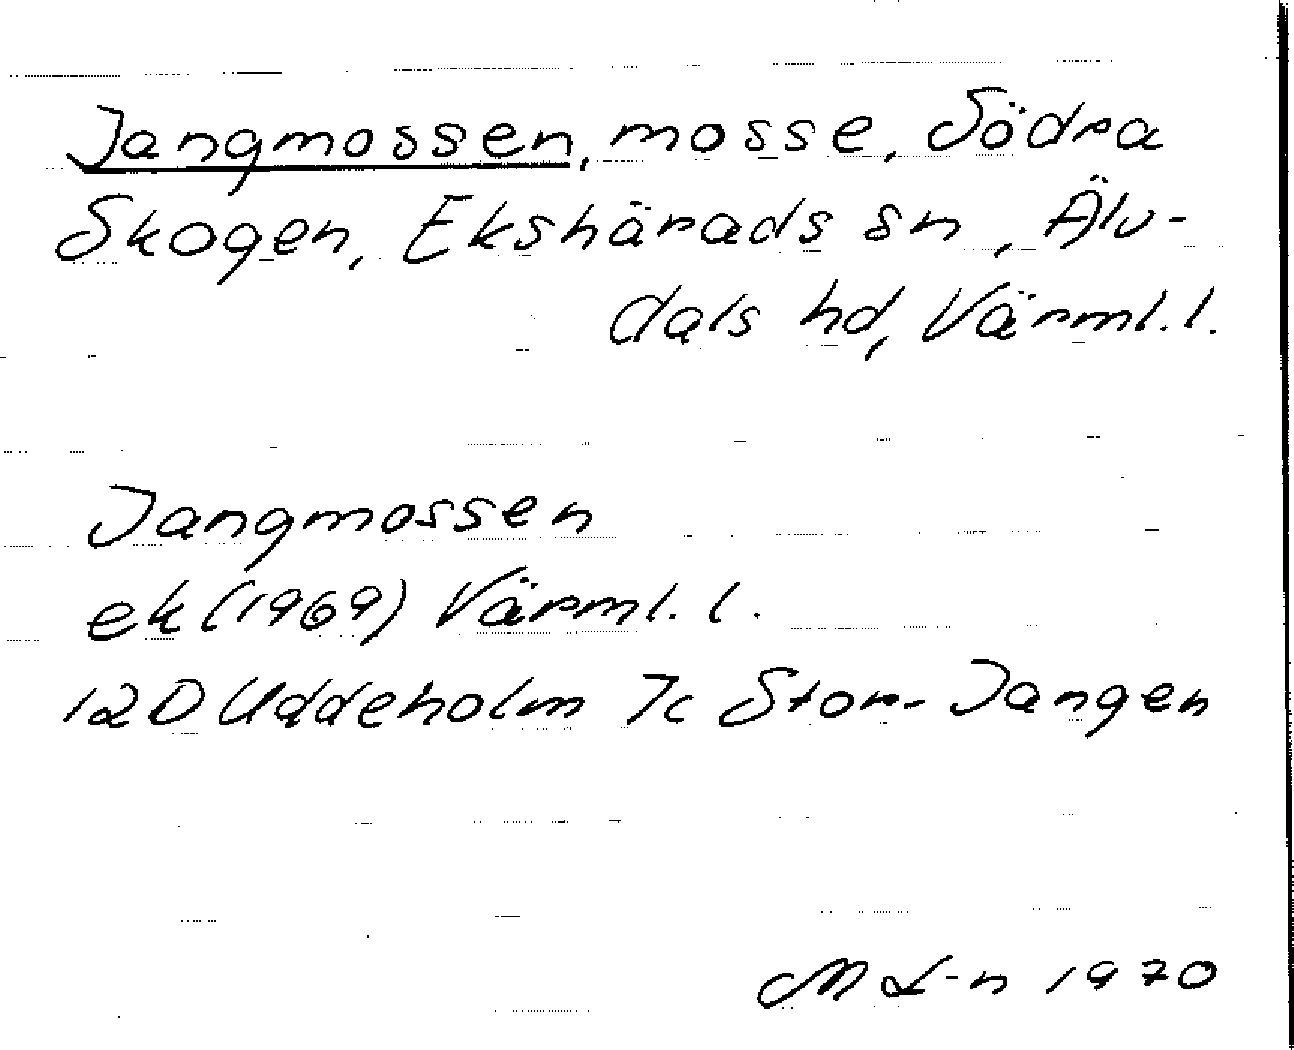 Jangmossen, mosse, Södra
Skogen, Ekshärads sn, Älv-
dals hd, Värml. l.
Jangmossen
ek (1969) Värml. l.
12D Uddeholm 7c Stor-Jangen
M L-n 1970